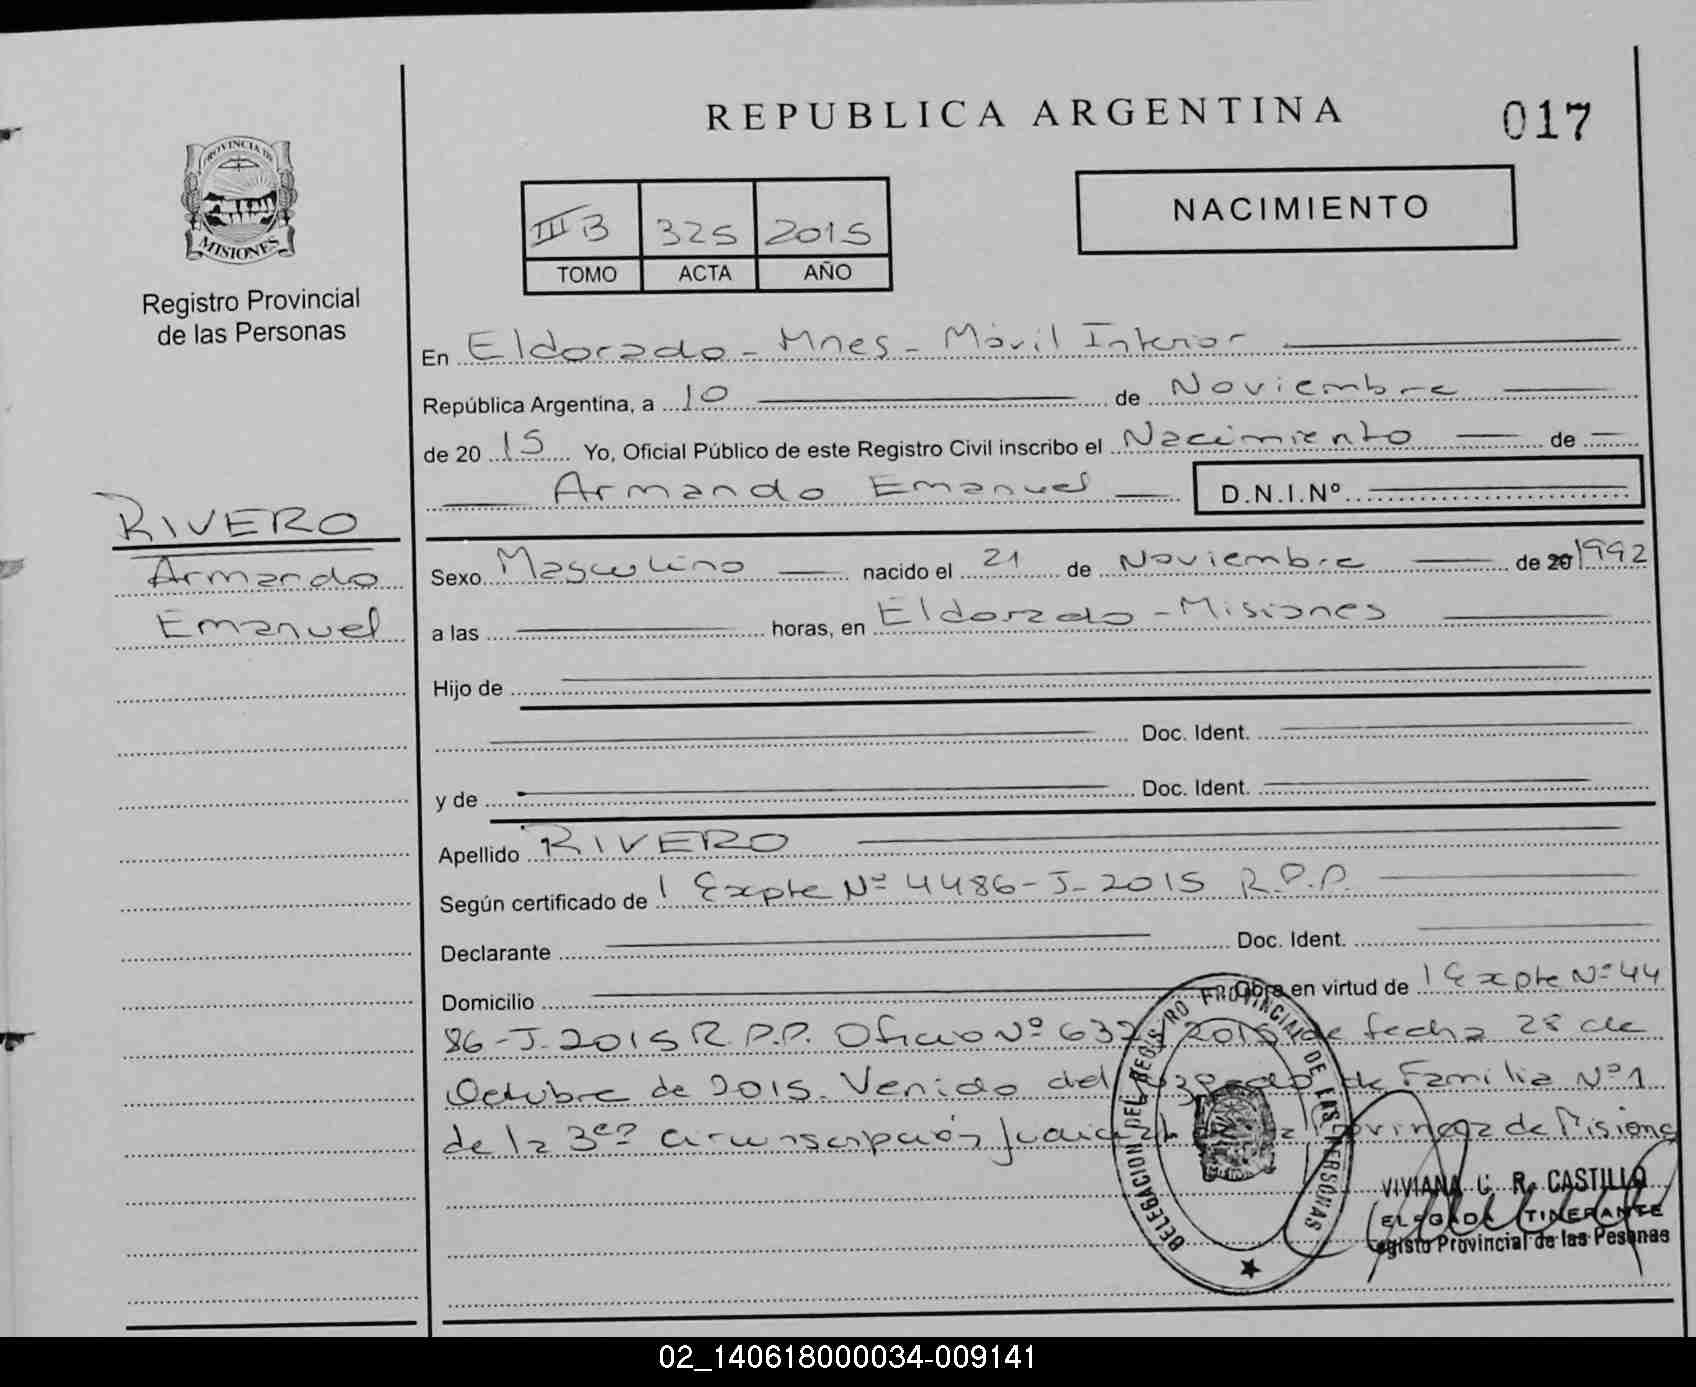 REPUBLICA ARGENTINA
017
PROVINCIA DE
MISIONES
Registro Provincial
de las Personas
NACIMIENTO
III B 325 2015
TOMO ACTA AÑO
En Eldorado - Mnes - Móvil Interior
República Argentina, a 10 de Noviembre
de 20 15 Yo, Oficial Público de este Registro Civil inscribo el Nacimiento de
Armando Emanuel D.N.I.Nº
RIVERO
Armando
Emanuel
Sexo Masculino nacido el 21 de Noviembre de 20 1992
a las horas, en Eldorado - Misiones
Hijo de
Doc. Ident.
y de Doc. Ident.
Apellido RIVERO
Según certificado de 1 Expte Nº 4486-J-2015 R.P.P.
Declarante Doc. Ident.
Domicilio Obra en virtud de 1 Expte Nº 44
86-J-2015 R.P.P. Oficio Nº 2015 de fecha 28 de
Octubre de 2015. Venido del Juzgado de Familia Nº 1
de la 3era circunscripción judicial Provincia de Misiones
DELEGACION DEL REGISTRO PROVINCIAL DE LAS PERSONAS
VIVIANA C. R. CASTILLO
ELEGADA ITINERANTE
egisto Provincial de las Pesonas
02_140618000034-009141